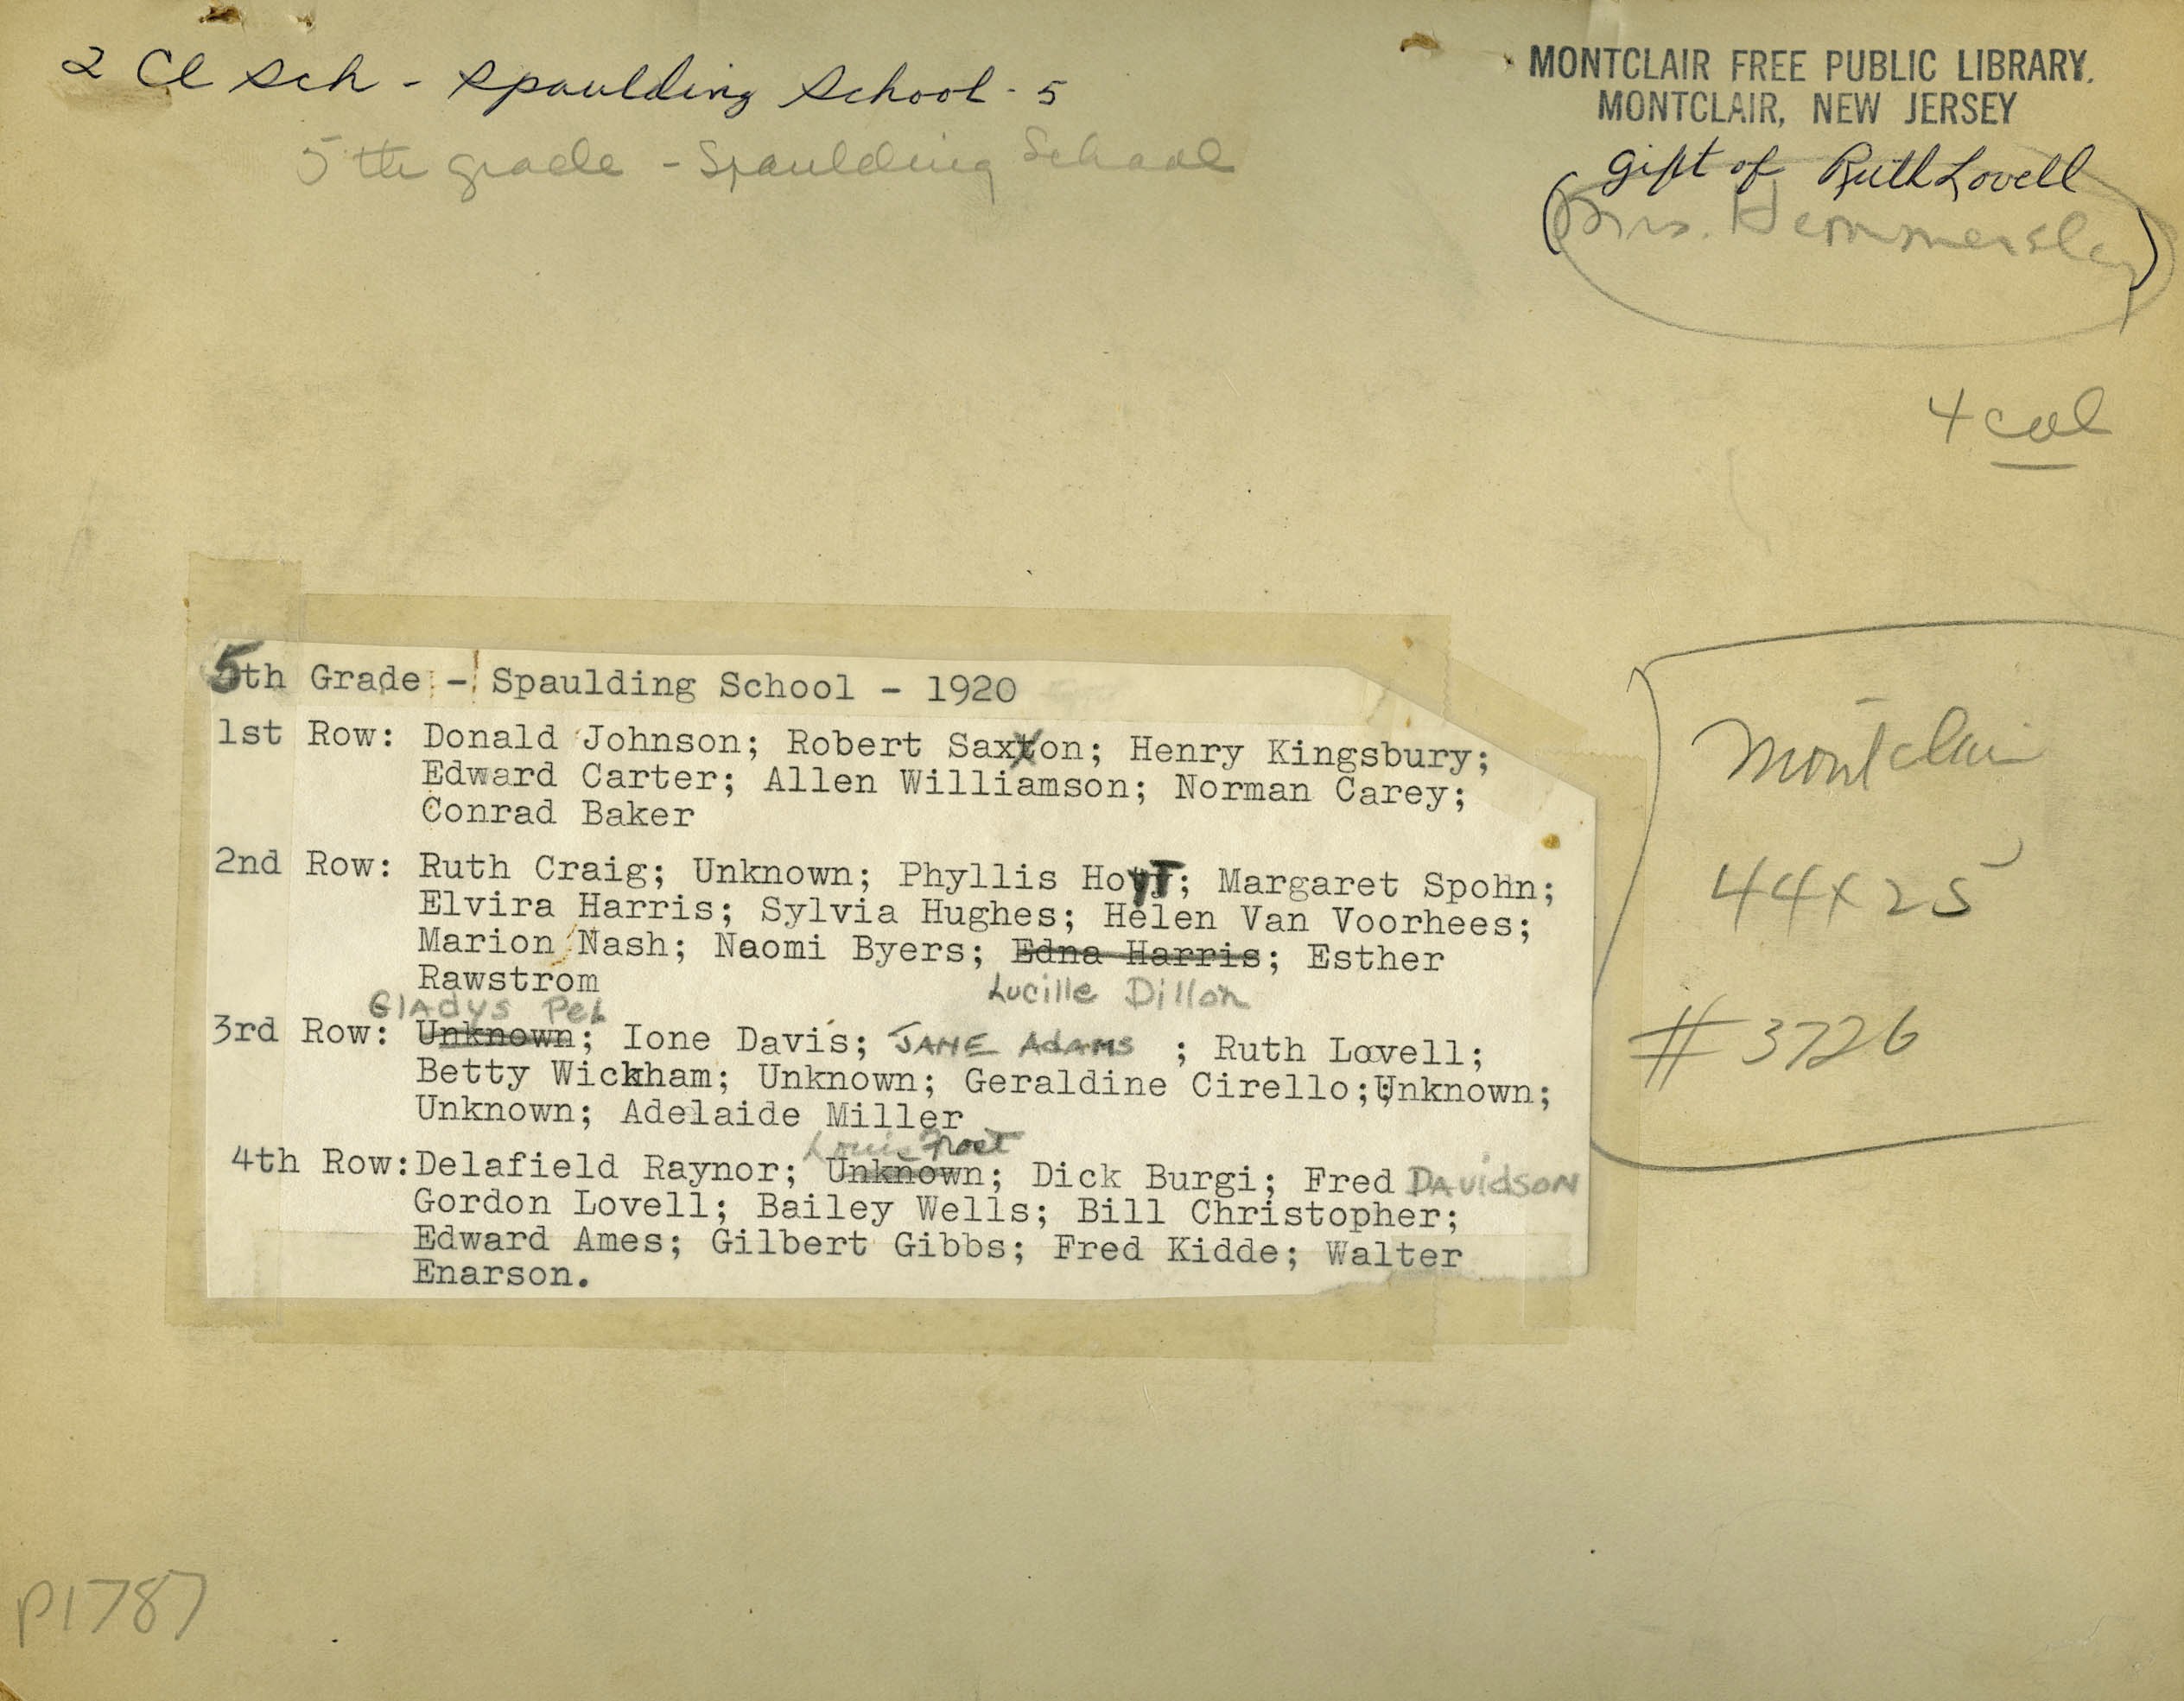 2 Cl Sch - Spaulding School - 5
5th grade - Spaulding School
MONTCLAIR FREE PUBLIC LIBRARY.
MONTCLAIR, NEW JERSEY
gift of Ruth Lovell
(Mrs. Hemmersley)
4 col
5th Grade - Spaulding School - 1920
1st Row: Donald Johnson; Robert Saxton; Henry Kingsbury;
Edward Carter; Allen Williamson; Norman Carey;
Conrad Baker
2nd Row: Ruth Craig; Unknown; Phyllis HoyT; Margaret Spohn;
Elvira Harris; Sylvia Hughes; Helen Van Voorhees;
Marion Nash; Naomi Byers; Edna Harris; Esther
Rawstrom
Lucille Dillon
Gladys Pel
3rd Row: Unknown; Ione Davis; JANE ADAMS ; Ruth Lovell;
Betty Wickham; Unknown; Geraldine Cirello; Unknown;
Unknown; Adelaide Miller
Louis Frost
4th Row: Delafield Raynor; Unknown; Dick Burgi; Fred DAVIDSON
Gordon Lovell; Bailey Wells; Bill Christopher;
Edward Ames; Gilbert Gibbs; Fred Kidde; Walter
Enarson.
Montclair
44x25
# 3726
P1787